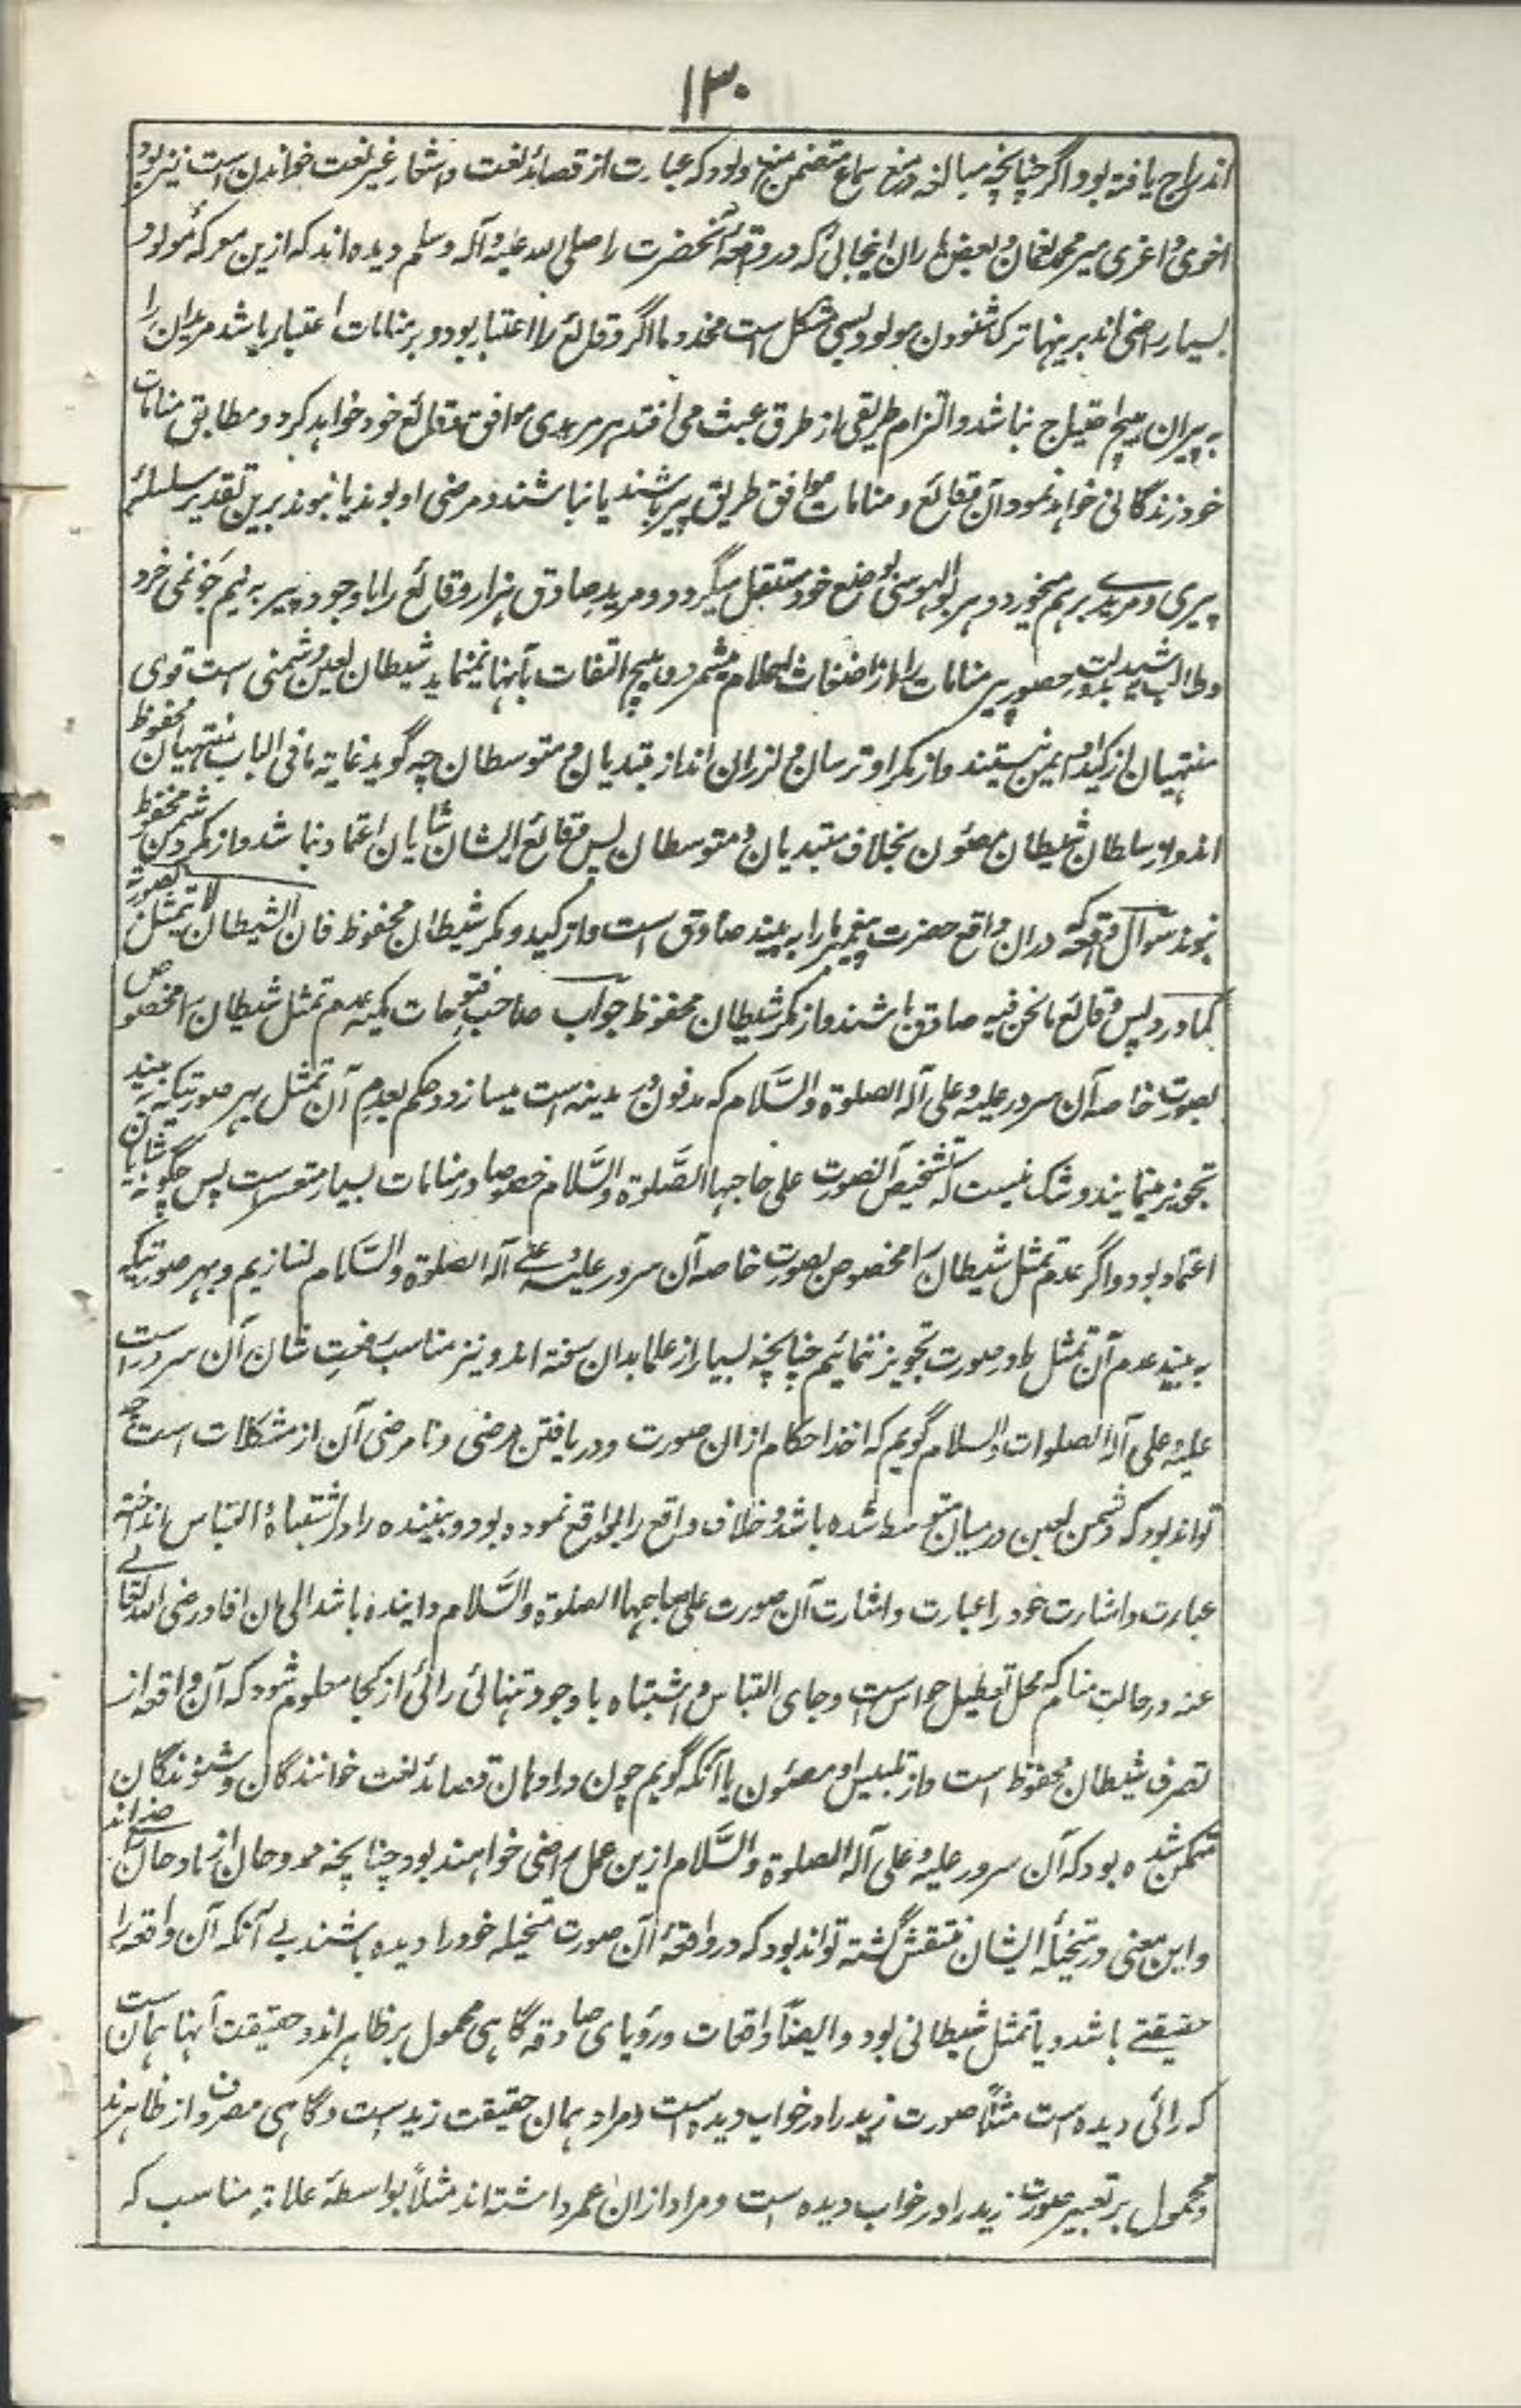 ۱۳۰
اندراج یافته بود اگر چنانچه مبالغه در منع سماع متضمن منع مولود که عبارت از قصائد نعت و اشعار غیر نعت خواندن است نیز بود
اخوی و اعزی میر محمد نعمان و بعض یاران اینجائی که در واقعه آنحضرت را صلی الله علیه و آله وسلم دیده اند که ازین معرکهٔ مولود
بسیار راضی اند برینها ترک شنودن مولود بسی مشکل است مخدوما اگر وقائع را اعتبار بود و بر منامات اعتبار باشد مریدان را
به پیران هیچ احتیاج نباشد و التزام طریقی از طرق عبث می افتد هر مریدی موافق وقائع خود خواهد کرد و مطابق منامات
خود زندگانی خواهد نمود آن وقائع و منامات موافق طریق پیر باشند یا نباشند و مرضی او بوند یا نبوند برین تقدیر سلسلهٔ
پیری و مریدی برهم میخورد و هر بوالهوسی بوضع خود مستقل میگردد و مرید صادق هزار وقائع را با وجود پیر به نیم جو نمی خرد
و طالب رشید بدولت حضور پیر منامات را از اضغاث احلام میشمرد و هیچ التفات بآنها نمینماید شیطان لعین دشمنی است قوی
منتهیان از کید او ایمن نیستند و از مکر او ترسان و لرزان اند از مبتدیان و متوسطان چه گوید غایة ما فی الباب منتهیان محفوظ
اند و از سلطان شیطان مصئون بخلاف مبتدیان و متوسطان پس وقائع ایشان شایان اعتماد نباشد و از مکر دشمن محفوظ
نبوند سوال واقعهٔ که دران واقع حضرت پیغمبر ما را به بیند صادق است و از کید و مکر شیطان محفوظ فان الشیطان لا یتمثل بصورته
کما ورد پس وقائع ما نحن فیه صادق باشند و از مکر شیطان محفوظ جواب صاحب فتوحات مکیه عدم تمثل شیطان را مخصوص
بصورت خاصه آن سرور علیه و علی آله الصلوة والسَّلام که مدفون در مدینه است میسازد و حکم بعدم آن تمثل بهر صورتیکه بینند
تجویز نمینمایند و شک نیست که تشخیص آن صورت علی صاحبها الصَّلوة والسَّلام خصوصا در منامات بسیار متعسر است پس چگونه شایان
اعتماد بود و اگر عدم تمثل شیطان را مخصوص بصورت خاصه آن سرور علیه و علی آله الصلوة والسَّلام نسازیم و بهر صورتیکه
به بینند عدم آن تمثل در صورت تجویز نمائیم چنانچه بسیار از علما بدان رفته اند و نیز مناسب رفعت شان آن سرور است
علیه و علی آله الصلوات والسلام گویم که اخذ احکام ازان صورت و دریافتن مرضی و نا مرضی آن از مشکلات است چه
تواند بود که دشمن لعین درمیان متوسط شده باشد و خلاف واقع را بواقع نموده بود و بیننده را در اشتباه و التباس انداخته
عبارت و اشارت خود را عبارت و اشارت آن صورت علی صاحبها الصلوة والسَّلام وا نموده باشد الی ان افاد رضی الله تعالی
عنه در حالت منام که محل تعطیل حواس است و جای التباس و اشتباه با وجود تنهائی رائی از کجا معلوم شود که آن واقعه از
تصرف شیطان محفوظ است و از تلبیس او مصئون یا آنکه گویم چون در اذهان قصائد نعت خوانندگان و شنوندگان
متمکن شده بود که آن سرور علیه و علی آله الصلوة والسَّلام ازین عمل راضی خواهند بود چنانچه ممدوحان از مادحان راضی اند
و این معنی در متخیلهٔ ایشان منتقش گشته تواند بود که در واقعه آن صورت متخیله خود را دیده باشند بے آنکه آن واقعه را
حقیقتے باشد و یا تمثل شیطانی بود و ایضاً واقعات و رؤیای صادقه گاهی محمول بر ظاهر اند و حقیقت آنها همان است
که رائی دیده است مثلاً صورت زید را در خواب دیده است و مراد همان حقیقت زید است و گاهی مصروف از ظاهر اند
و محمول بر تعبیر صورت زید را در خواب دیده است و مراد ازان عمر داشته اند مثلاً بواسطهٔ علاقهٔ مناسب که